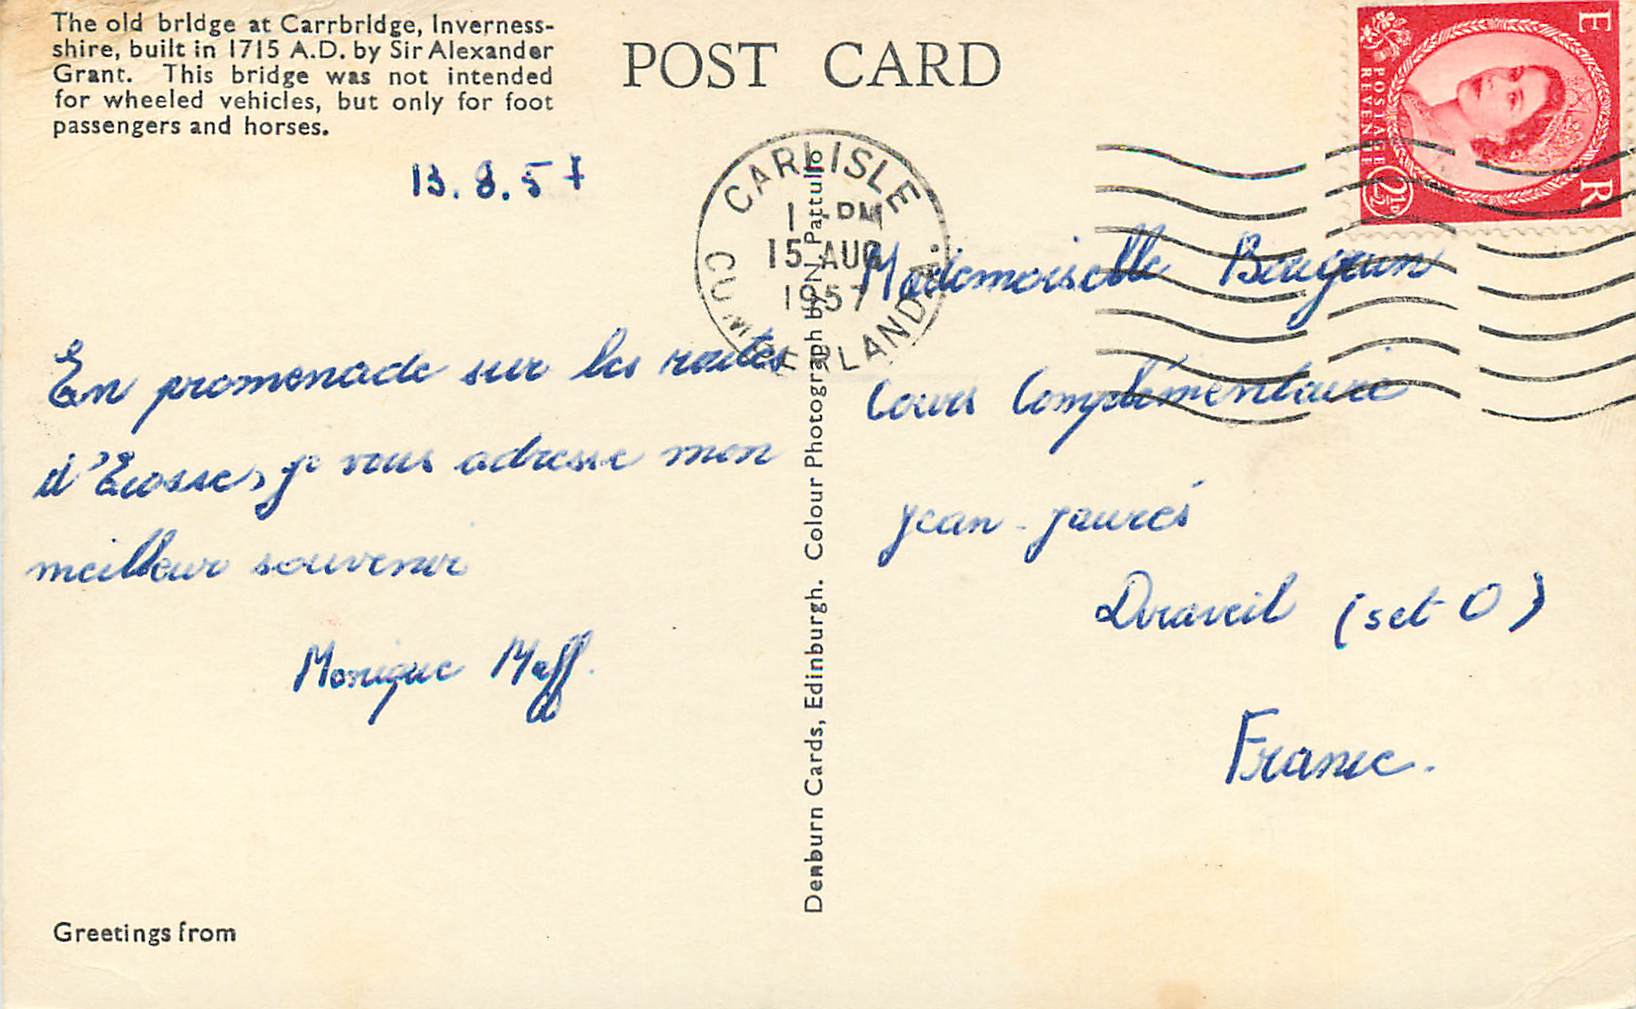 The old bridge at Carrbridge, Inverness-
shire, built in 1715 A.D. by Sir Alexander
Grant. This bridge was not intended
for wheeled vehicles, but only for foot
passengers and horses.
POST CARD
E R
POSTAGE
REVENUE
2½D
13.8.57
CARLISLE
PM
15 AUG
1957
CUMBERLAND
En promenade sur les routes
d'Ecosse, je vous adresse mon
meilleur souvenir
Monique
Mademoiselle
Cours Complémentaire
Jean-Jaurés
Draveil (S et O)
France.
Denburn Cards, Edinburgh. Colour Photograph by ON Pattullo
Greetings from